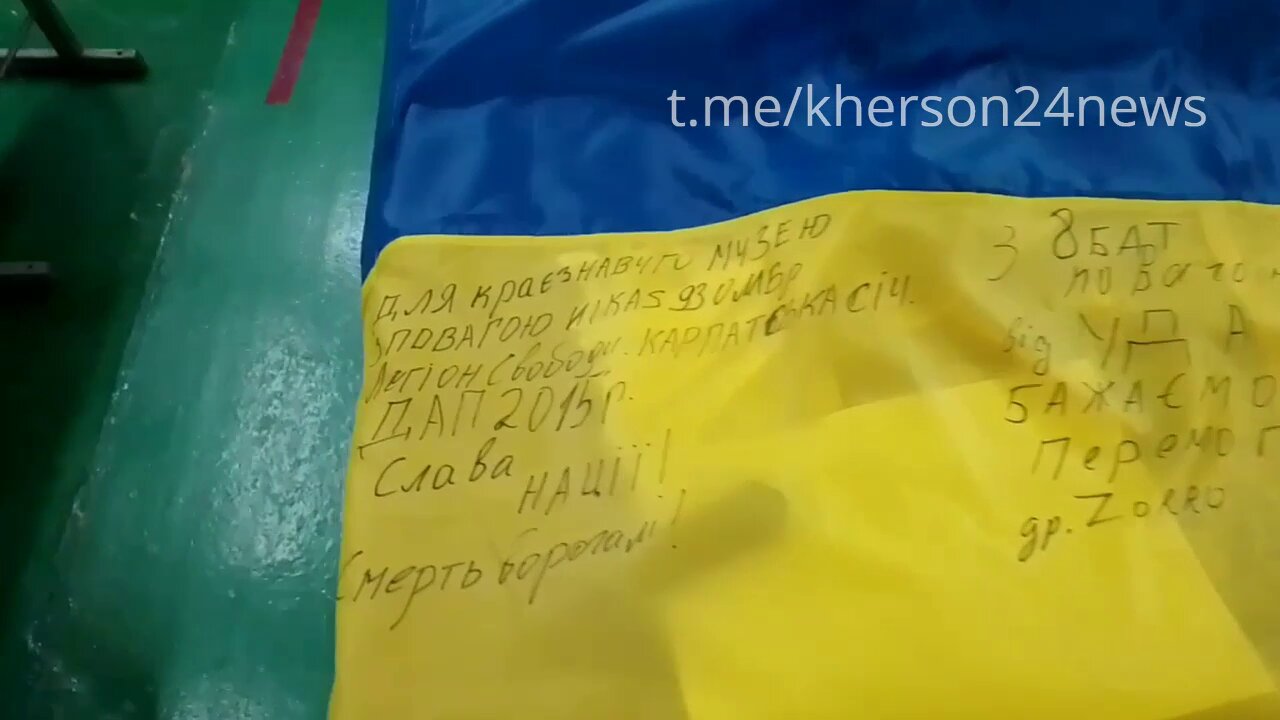 t.me/kherson24news
Для краєзнавчго музею
з повагою 93 ОМБР
Легіон Свободи. Карпатська Січ.
ДАП 2015р.
Слава
НАЦІЇ!
Смерть ворогам!
З 8 БАТ
від УДА
БАЖАЄМО
Перемог
др. Zorro